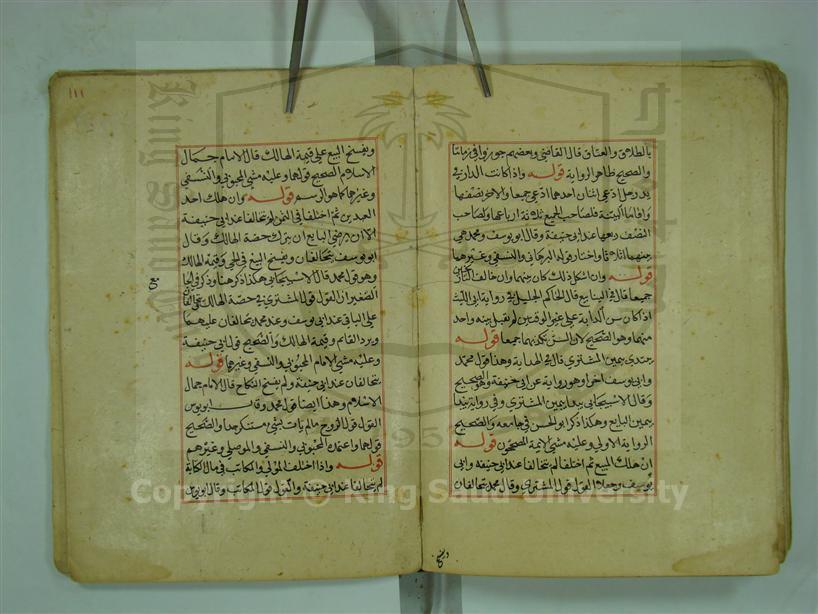 بالطلاق والعتاق قال القاضي وبعضهم جوزوا في زماننا
والصحيح ظاهر الرواية قوله واذا كانت الدار في
يد رجل ادعى اثنان احدهما ادعى جميعا والاخر نصفها
واقاما البينة فلصاحب الجميع ثلاثة ارباعها ولصاحب
النصف ربعها عند ابي حنيفة وقال ابو يوسف ومحمد هي
بينهما اثلاثا واختار قوله البرهاني والنسفي وغيرهما
قوله وان اشكل ذلك كان بينهما وان خالف
جميعا قال في الينابيع قال الحاكم الجليل في رواية ابي الليث
اذ كان سن الدابة على غير الوقتين لم تقبل بينة واحد
منهما وهو الصحيح لان السن يكذبهما جميعا قوله
يبتدي بيمين المشتري قال في الهداية وهذا قول محمد
وابي يوسف اخرا وهو رواية عن ابي حنيفة وهو الصحيح
وقال الاسبيجابي يبدا بيمين المشتري وفي رواية يبدا
بيمين البايع وهكذا ذكر ابو الحسن في جامعه والصحيح
الرواية الاولى وعليه مشى الايمة المصححون قوله
ان هلك المبيع ثم اختلفا لم يتحالفا عند ابي حنيفة وابي
يوسف وجعلا القول قول المشتري وقال محمد يتحالفان
١١١
ويفسخ البيع على قيمة الهالك قال الامام جمال
الاسلام الصحيح قولهما وعليه مشى المحبوبي والنسفي
وغيرهما كما هو الرسم قوله وان هلك احد
العبدين ثم اختلفا في الثمن لم يتحالفا عند ابي حنيفة
الا ان يرضى البايع ان يترك حصة الهالك وقال
ابو يوسف يتحالفان ويفسخ البيع في الحي وقيمة الهالك
وهو قول محمد قال الاسبيجابي هكذا ذكر هنا وذكر في الجامع
الصغير ان القول قول المشتري في حصة الهالك
على الباقي عند ابي يوسف وعند محمد يتحالفان عليهما
ويرد القايم وقيمة الهالك والصحيح قول ابي حنيفة
وعليه مشى الامام المحبوبي والنسفي وغيرهما قوله
يتحالفان عند ابي حنيفة ولم يفسخ النكاح قال الامام جمال
الاسلام وهذا ايضا قول محمد وقال ابو يوسف
القول قول الزوج ما لم يات بشي مستنكر جدا والصحيح
قولهما واعتمده المحبوبي والنسفي والموصلي وغيرهم
قوله واذا اختلف المولى والمكاتب في مال الكتابة
لم يتحالفا عند ابي حنيفة والقول قول المكاتب وقال ابو يوسف
Copyright © King Saud University